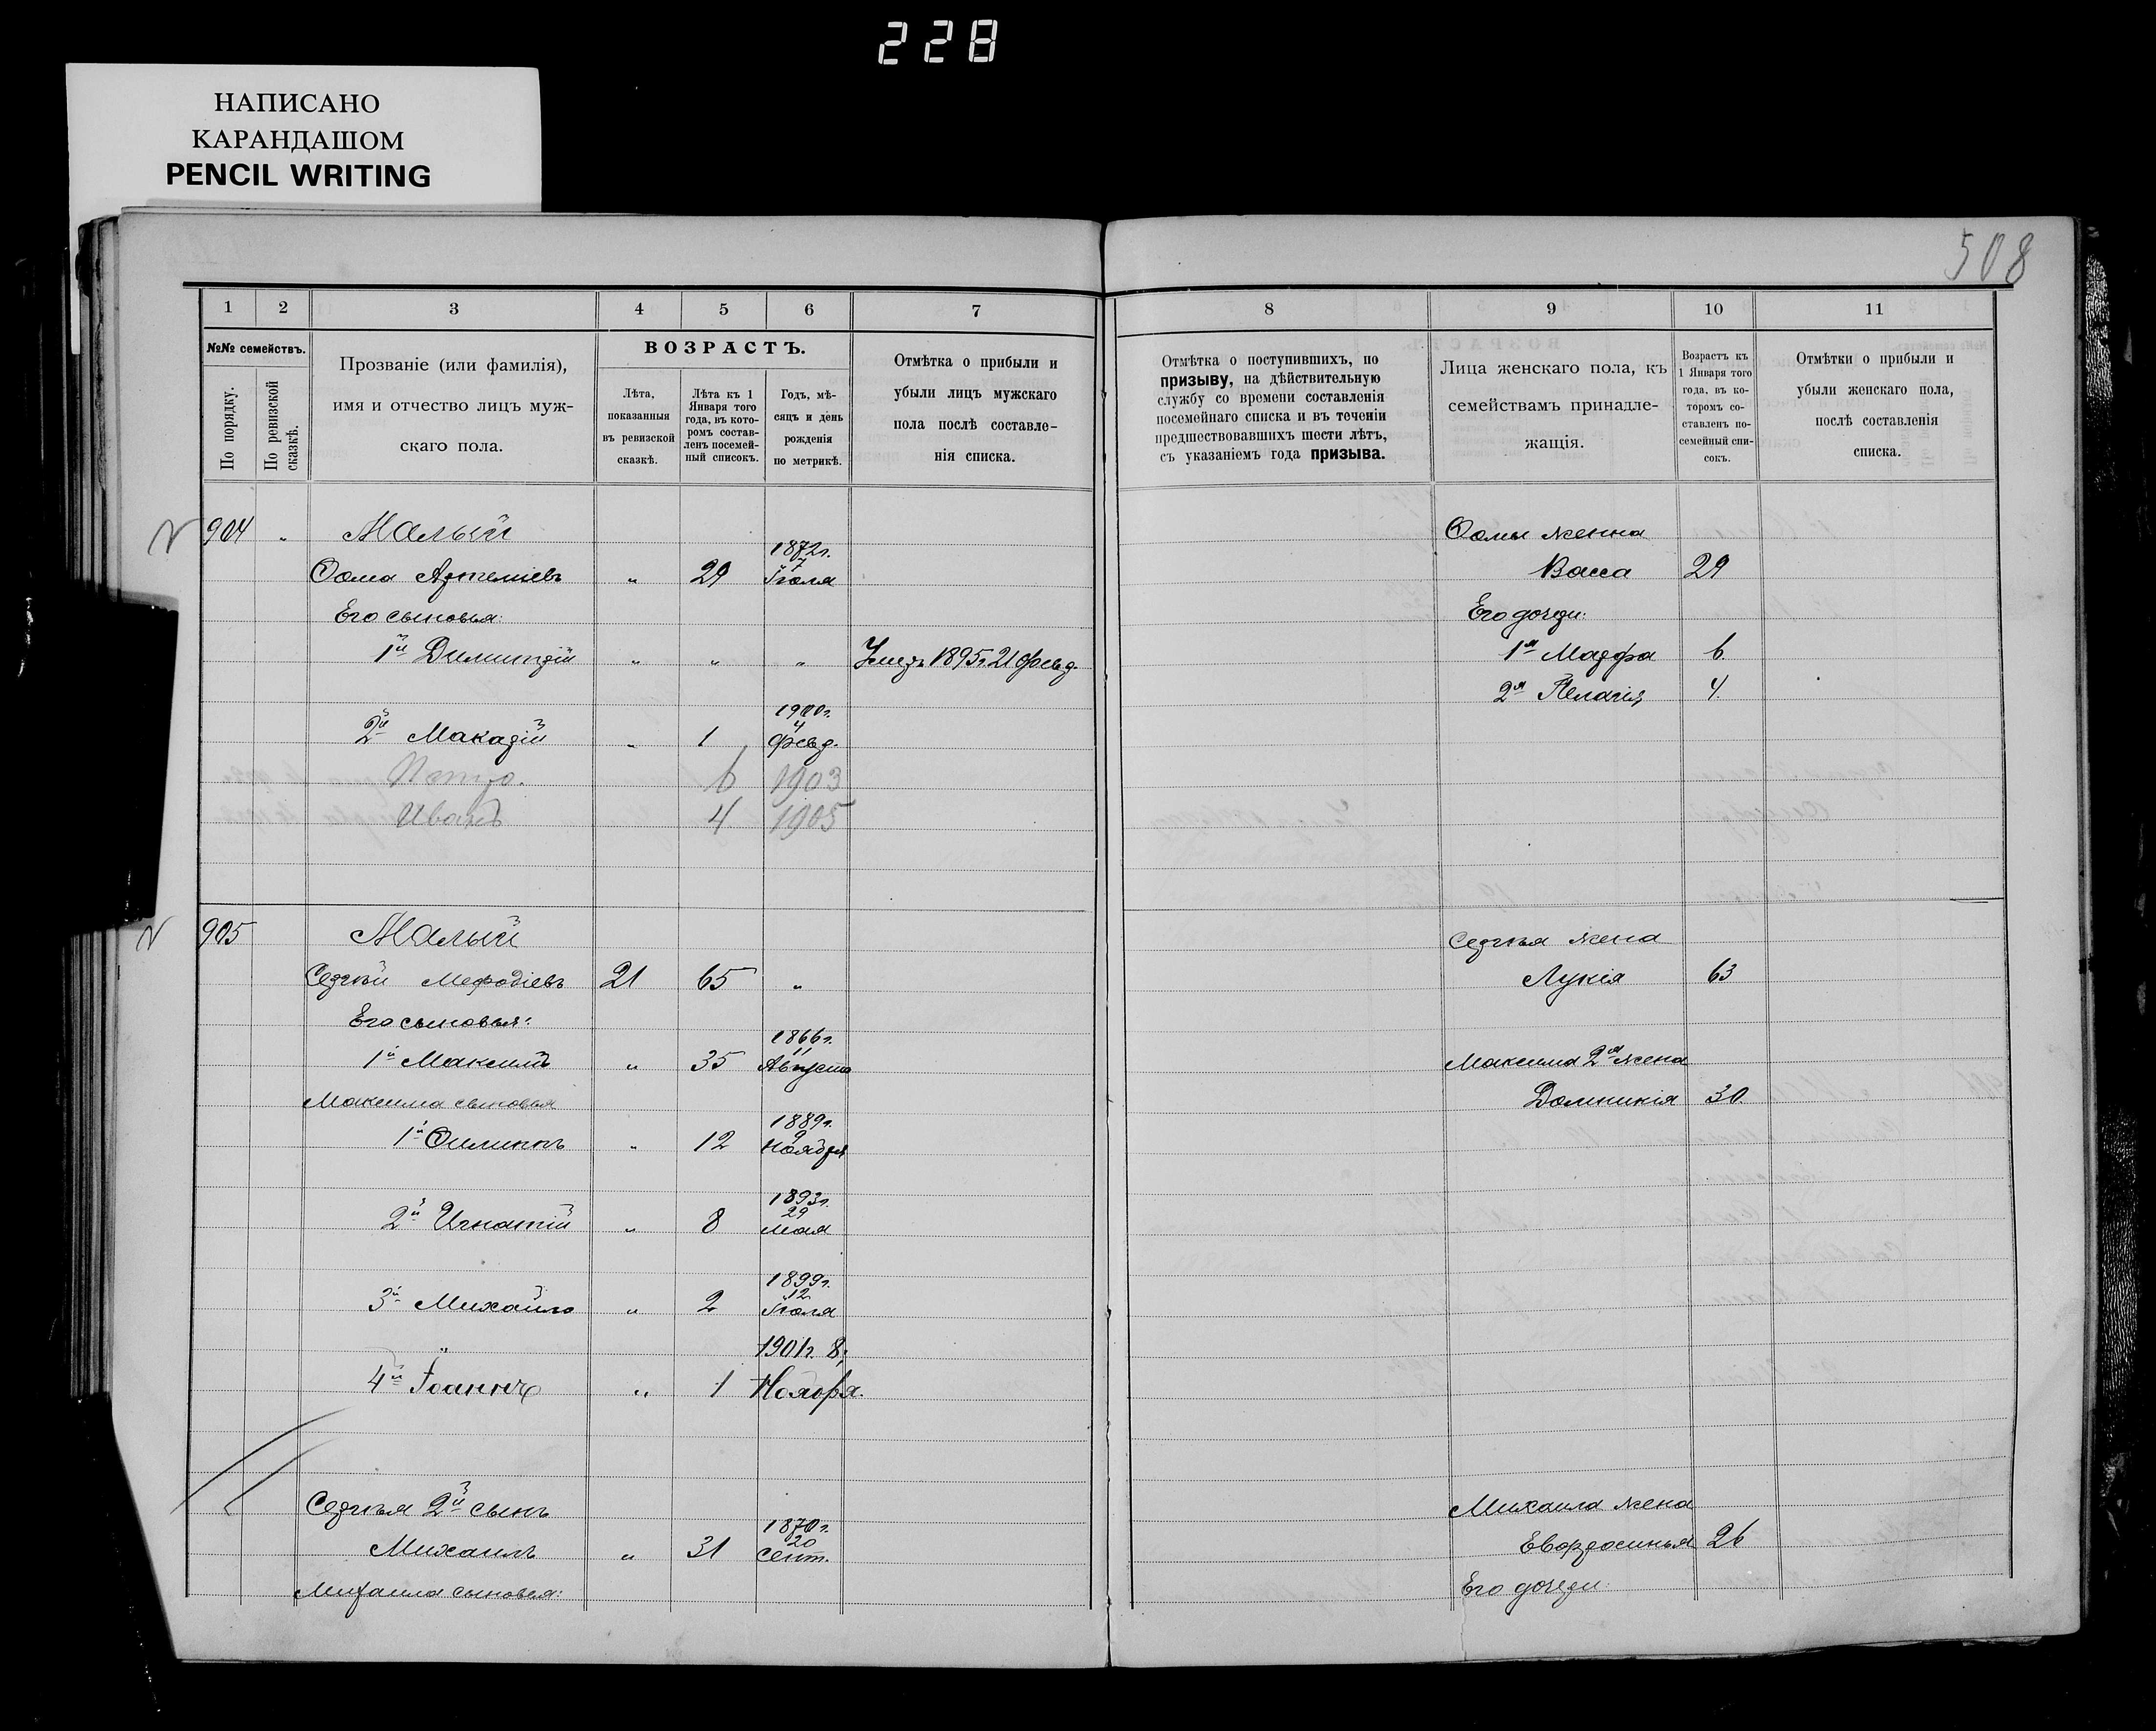 228
НАПИСАНО
КАРАНДАШОМ
PENCIL WRITING
508
1 2 3 4 5 6 7
№№ семействъ.
По порядку.
По ревизской сказкѣ.
Прозваніе (или фамилія),
имя и отчество лицъ муж-
скаго пола.
ВОЗРАСТЪ.
Лѣта,
показанныя
въ ревизской
сказкѣ.
Лѣта къ 1
Января того
года, въ кото-
ромъ состав-
ленъ посемей-
ный списокъ.
Годъ, мѣ-
сяцъ и день
рожденія
по метрикѣ.
Отмѣтка о прибыли и
убыли лицъ мужскаго
пола послѣ составле-
нія списка.
8 9 10 11
Отмѣтка о поступившихъ, по
призыву, на дѣйствительную
службу со времени составленія
посемейнаго списка и въ теченіи
предшествовавшихъ шести лѣтъ,
съ указаніемъ года призыва.
Лица женскаго пола, къ
семействамъ принадле-
жащія.
Возрастъ къ
1 Января того
года, въ ко-
торомъ со-
ставленъ по-
семейный спи-
сокъ.
Отмѣтки о прибыли и
убыли женскаго пола,
послѣ составленія
списка.
904 " Малый
1872г.
Ѳома Артеміевъ " 29 7 Іюля
Его сыновья:
1й Димитрій " " " Умеръ 1895г. 21 Февр.
1900г.
2й Макарій " 1 4 Февр.
Петро. 6 1903
Иванъ 4 1905
Ѳомы женна
Васса 29
Его дочери:
1я Марфа 6.
2я Пелагія 4.
905 Малый
Сергѣй Мефодіевъ 21 65 "
Его сыновья:
1866г.
1й Максимъ " 35 11 Августа
Максима сыновья
1889г.
1й Филиппъ " 12 9 Ноября
1893г.
2й Игнатій " 8 29 Мая
1899г.
3й Михайло " 2 12 Іюля
1901г. 8;
4й Іоаннъ " 1 Ноября.
Сергѣя 2й сынъ
1870г.
Михаилъ " 31 20 Сент.
Михаила сыновья:
Сергѣя жена
Лукія 63
Максима 2я жена
Домникія 30.
Михаила жена
Евфросинья 26
Его дочери: